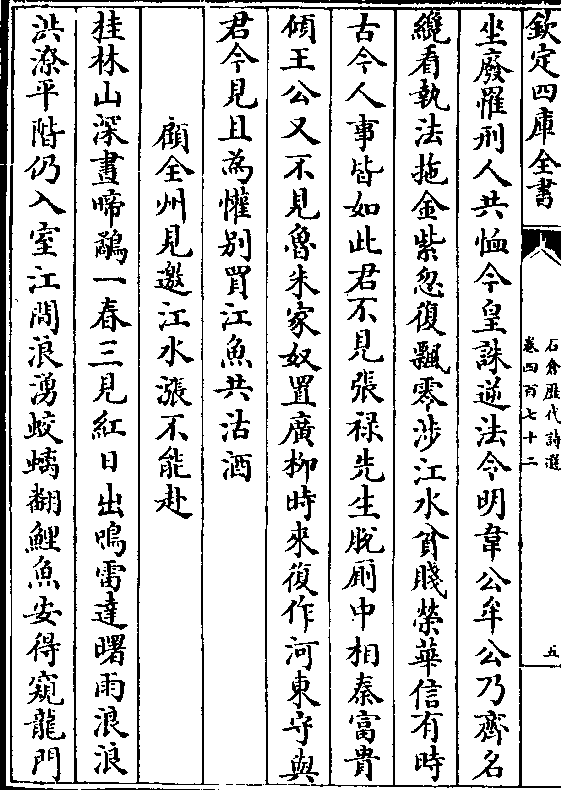 欽定四庫全書
石倉歷代詩選
卷四百七十二
五
坐廢罹刑人共恤今皇誅逆法令明韋公牟公乃齊名
纔看執法拖金紫忽復飄零涉江水貧賤榮華信有時
古今人事皆如此君不見張禄先生脫厠中相秦富貴
傾王公又不見魯朱家奴置廣柳時來復作河東守與
君今見且為懽别買江魚共沽酒
顧全州見邀江水漲不能赴
桂林山深晝啼鷸一春三見紅日出鳴雷達曙雨浪浪
洪潦平階仍入室江閒浪湧蛟螭翻鯉魚安得窺龍門